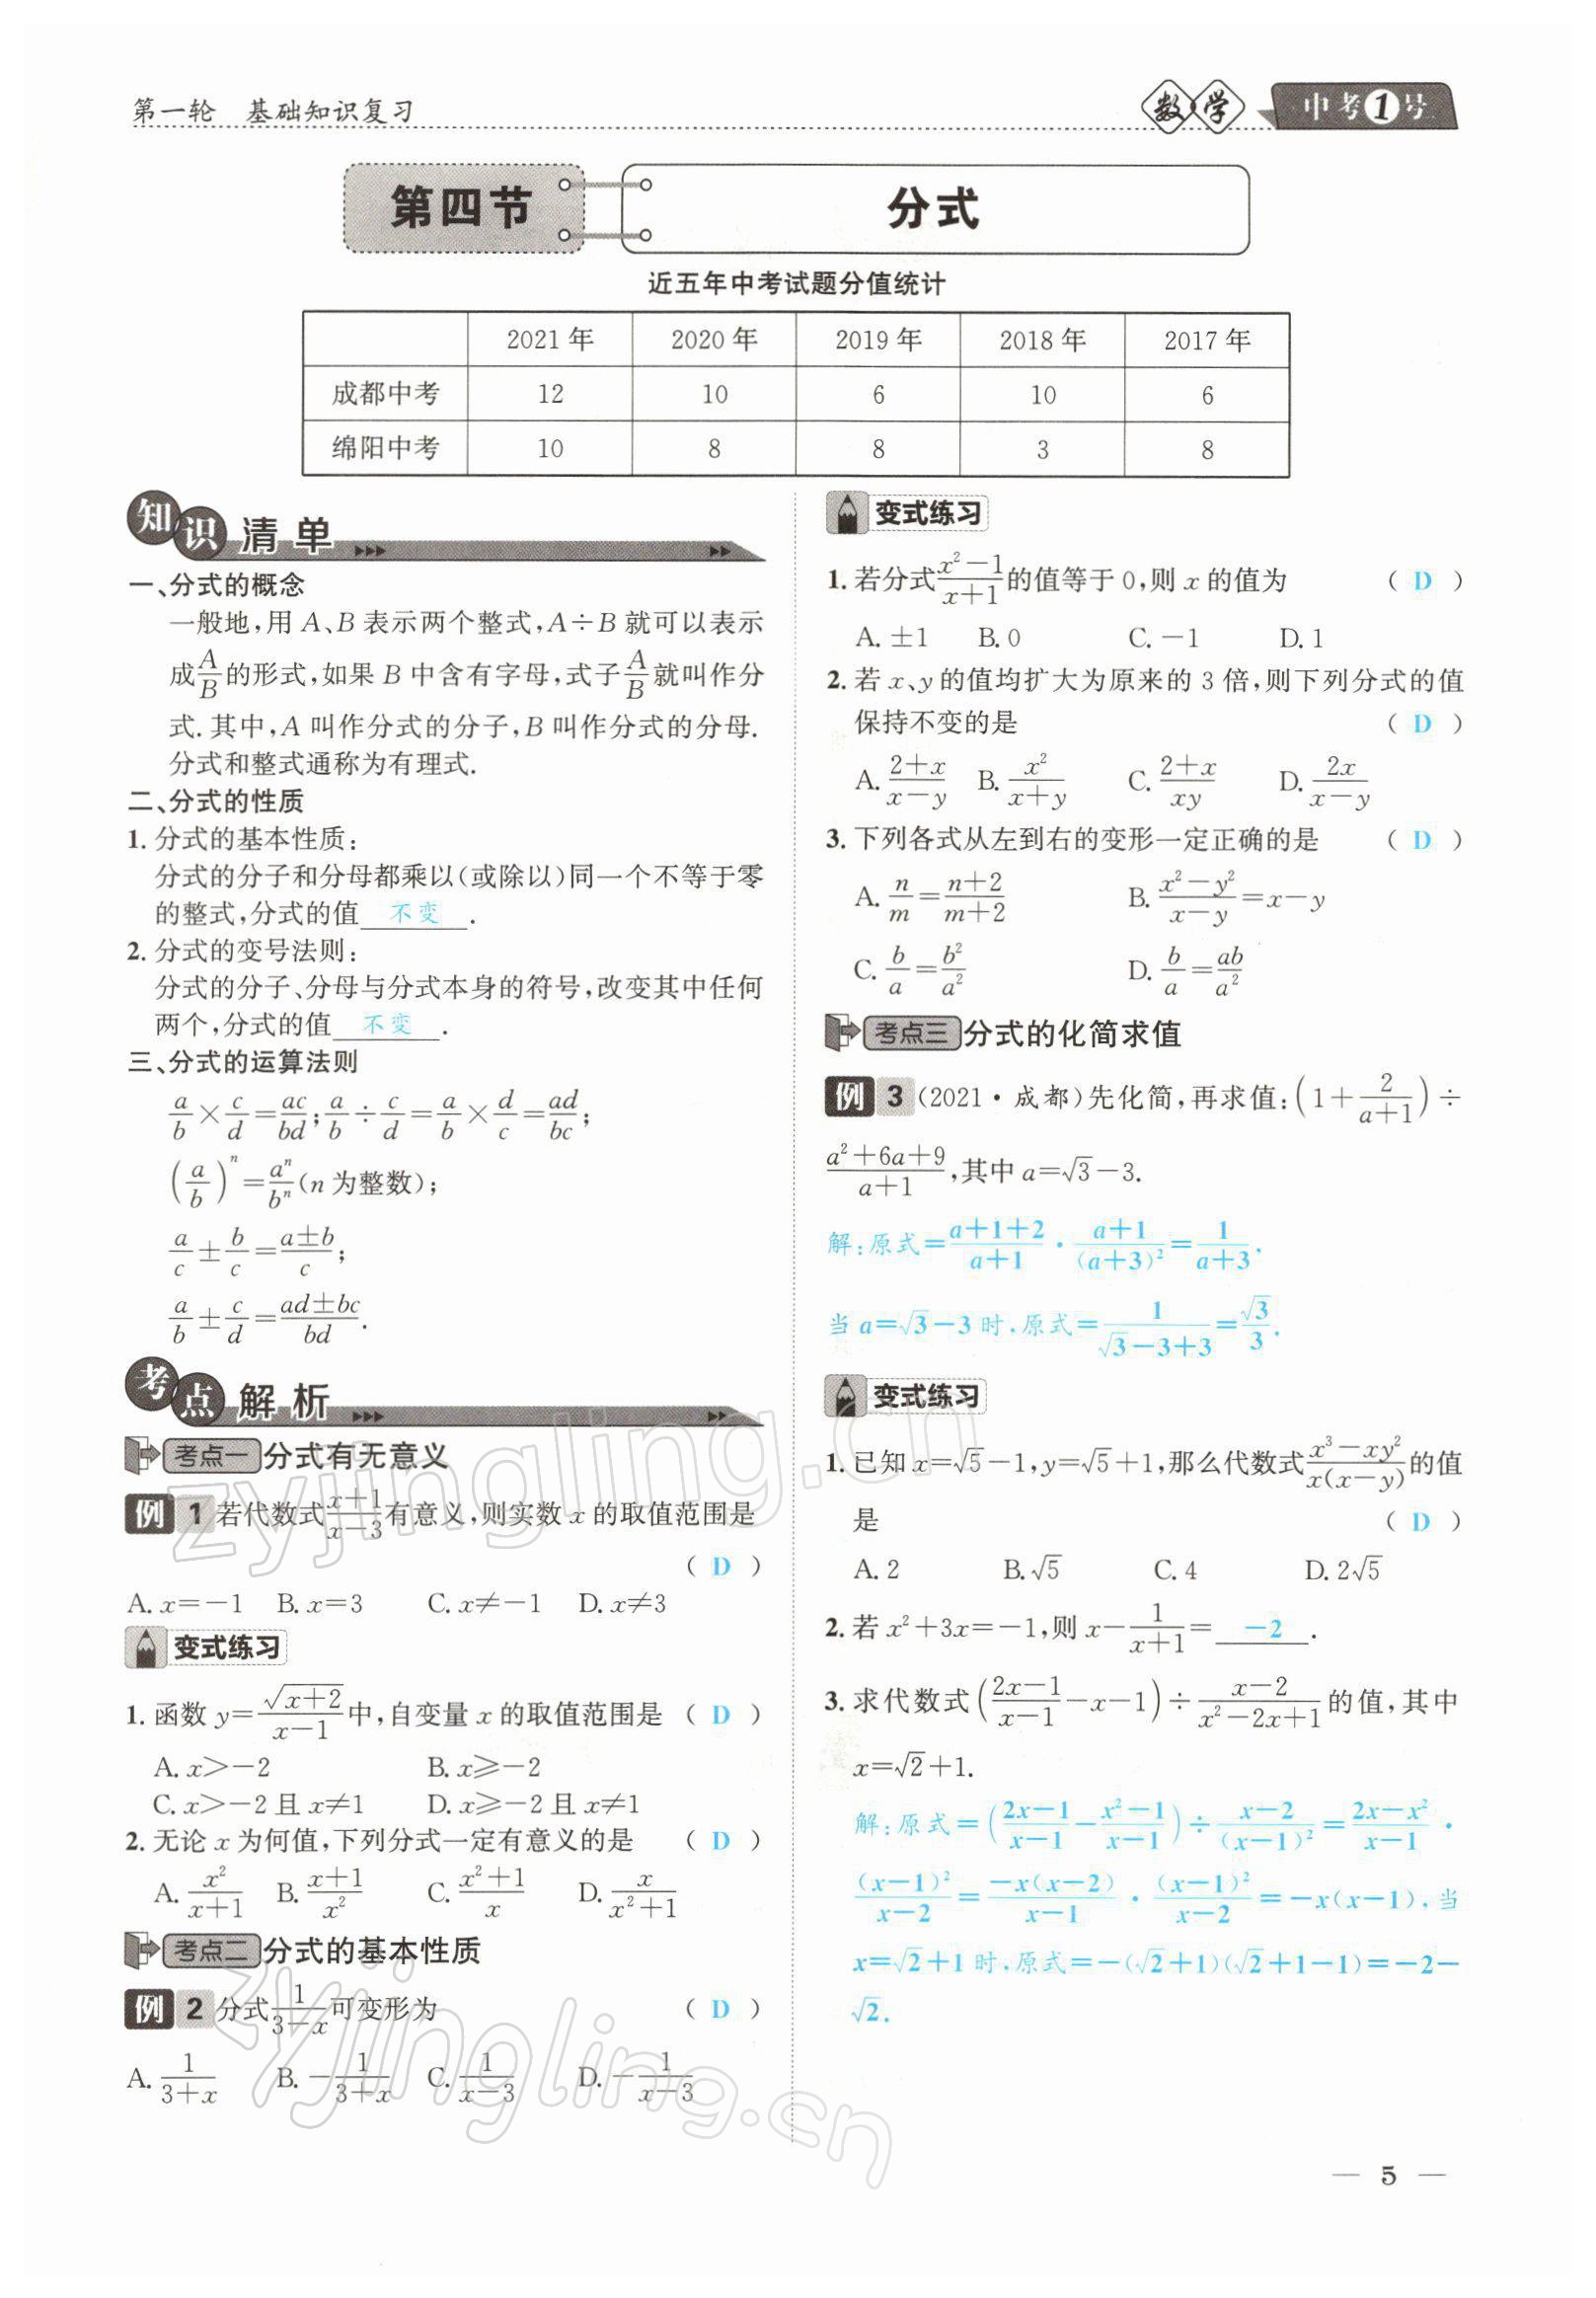 第一轮　基础知识复习
数学　中考1号
第四节　分式
近五年中考试题分值统计
2021 年　2020 年　2019 年　2018 年　2017 年
成都中考　12　10　6　10　6
绵阳中考　10　8　8　3　8
知识清单
一、分式的概念
一般地,用 A、B 表示两个整式,A÷B 就可以表示
成 A/B 的形式,如果 B 中含有字母,式子 A/B 就叫作分
式.其中,A 叫作分式的分子,B 叫作分式的分母.
分式和整式通称为有理式.
二、分式的性质
1. 分式的基本性质:
分式的分子和分母都乘以(或除以)同一个不等于零
的整式,分式的值 不变 .
2. 分式的变号法则:
分式的分子、分母与分式本身的符号,改变其中任何
两个,分式的值 不变 .
三、分式的运算法则
a/b × c/d = ac/bd; a/b ÷ c/d = a/b × d/c = ad/bc;
(a/b)ⁿ = aⁿ/bⁿ (n 为整数);
a/c ± b/c = (a±b)/c;
a/b ± c/d = (ad±bc)/bd.
考点解析
考点一 分式有无意义
例 1 若代数式 (x+1)/(x−3) 有意义,则实数 x 的取值范围是
( D )
A. x=−1　B. x=3　C. x≠−1　D. x≠3
变式练习
1. 函数 y=√(x+2)/(x−1) 中,自变量 x 的取值范围是 ( D )
A. x>−2　B. x⩾−2
C. x>−2 且 x≠1　D. x⩾−2 且 x≠1
2. 无论 x 为何值,下列分式一定有意义的是 ( D )
A. x²/(x+1)　B. (x+1)/x²　C. (x²+1)/x　D. x/(x²+1)
考点二 分式的基本性质
例 2 分式 1/(3−x) 可变形为 ( D )
A. 1/(3+x)　B. −1/(3+x)　C. 1/(x−3)　D. −1/(x−3)
变式练习
1. 若分式 (x²−1)/(x+1) 的值等于 0,则 x 的值为 ( D )
A. ±1　B. 0　C. −1　D. 1
2. 若 x、y 的值均扩大为原来的 3 倍,则下列分式的值
保持不变的是 ( D )
A. (2+x)/(x−y)　B. x²/(x+y)　C. (2+x)/xy　D. 2x/(x−y)
3. 下列各式从左到右的变形一定正确的是 ( D )
A. n/m = (n+2)/(m+2)　B. (x²−y²)/(x−y) = x−y
C. b/a = b²/a²　D. b/a = ab/a²
考点三 分式的化简求值
例 3 (2021·成都)先化简,再求值: (1+2/(a+1)) ÷
(a²+6a+9)/(a+1),其中 a=√3−3.
解:原式=(a+1+2)/(a+1) · (a+1)/(a+3)² = 1/(a+3).
当 a=√3−3 时,原式=1/(√3−3+3)=√3/3.
变式练习
1. 已知 x=√5−1,y=√5+1,那么代数式 (x³−xy²)/(x(x−y)) 的值
是 ( D )
A. 2　B. √5　C. 4　D. 2√5
2. 若 x²+3x=−1,则 x−1/(x+1)= −2 .
3. 求代数式 ((2x−1)/(x−1)−x−1) ÷ (x−2)/(x²−2x+1) 的值,其中
x=√2+1.
解:原式=((2x−1)/(x−1)−(x²−1)/(x−1)) ÷ (x−2)/(x−1)² = (2x−x²)/(x−1) ·
(x−1)²/(x−2) = −x(x−2)/(x−1) · (x−1)²/(x−2) = −x(x−1),当
x=√2+1 时,原式=−(√2+1)(√2+1−1)=−2−
√2.
— 5 —
zyjingling.cn
zyjingling.cn